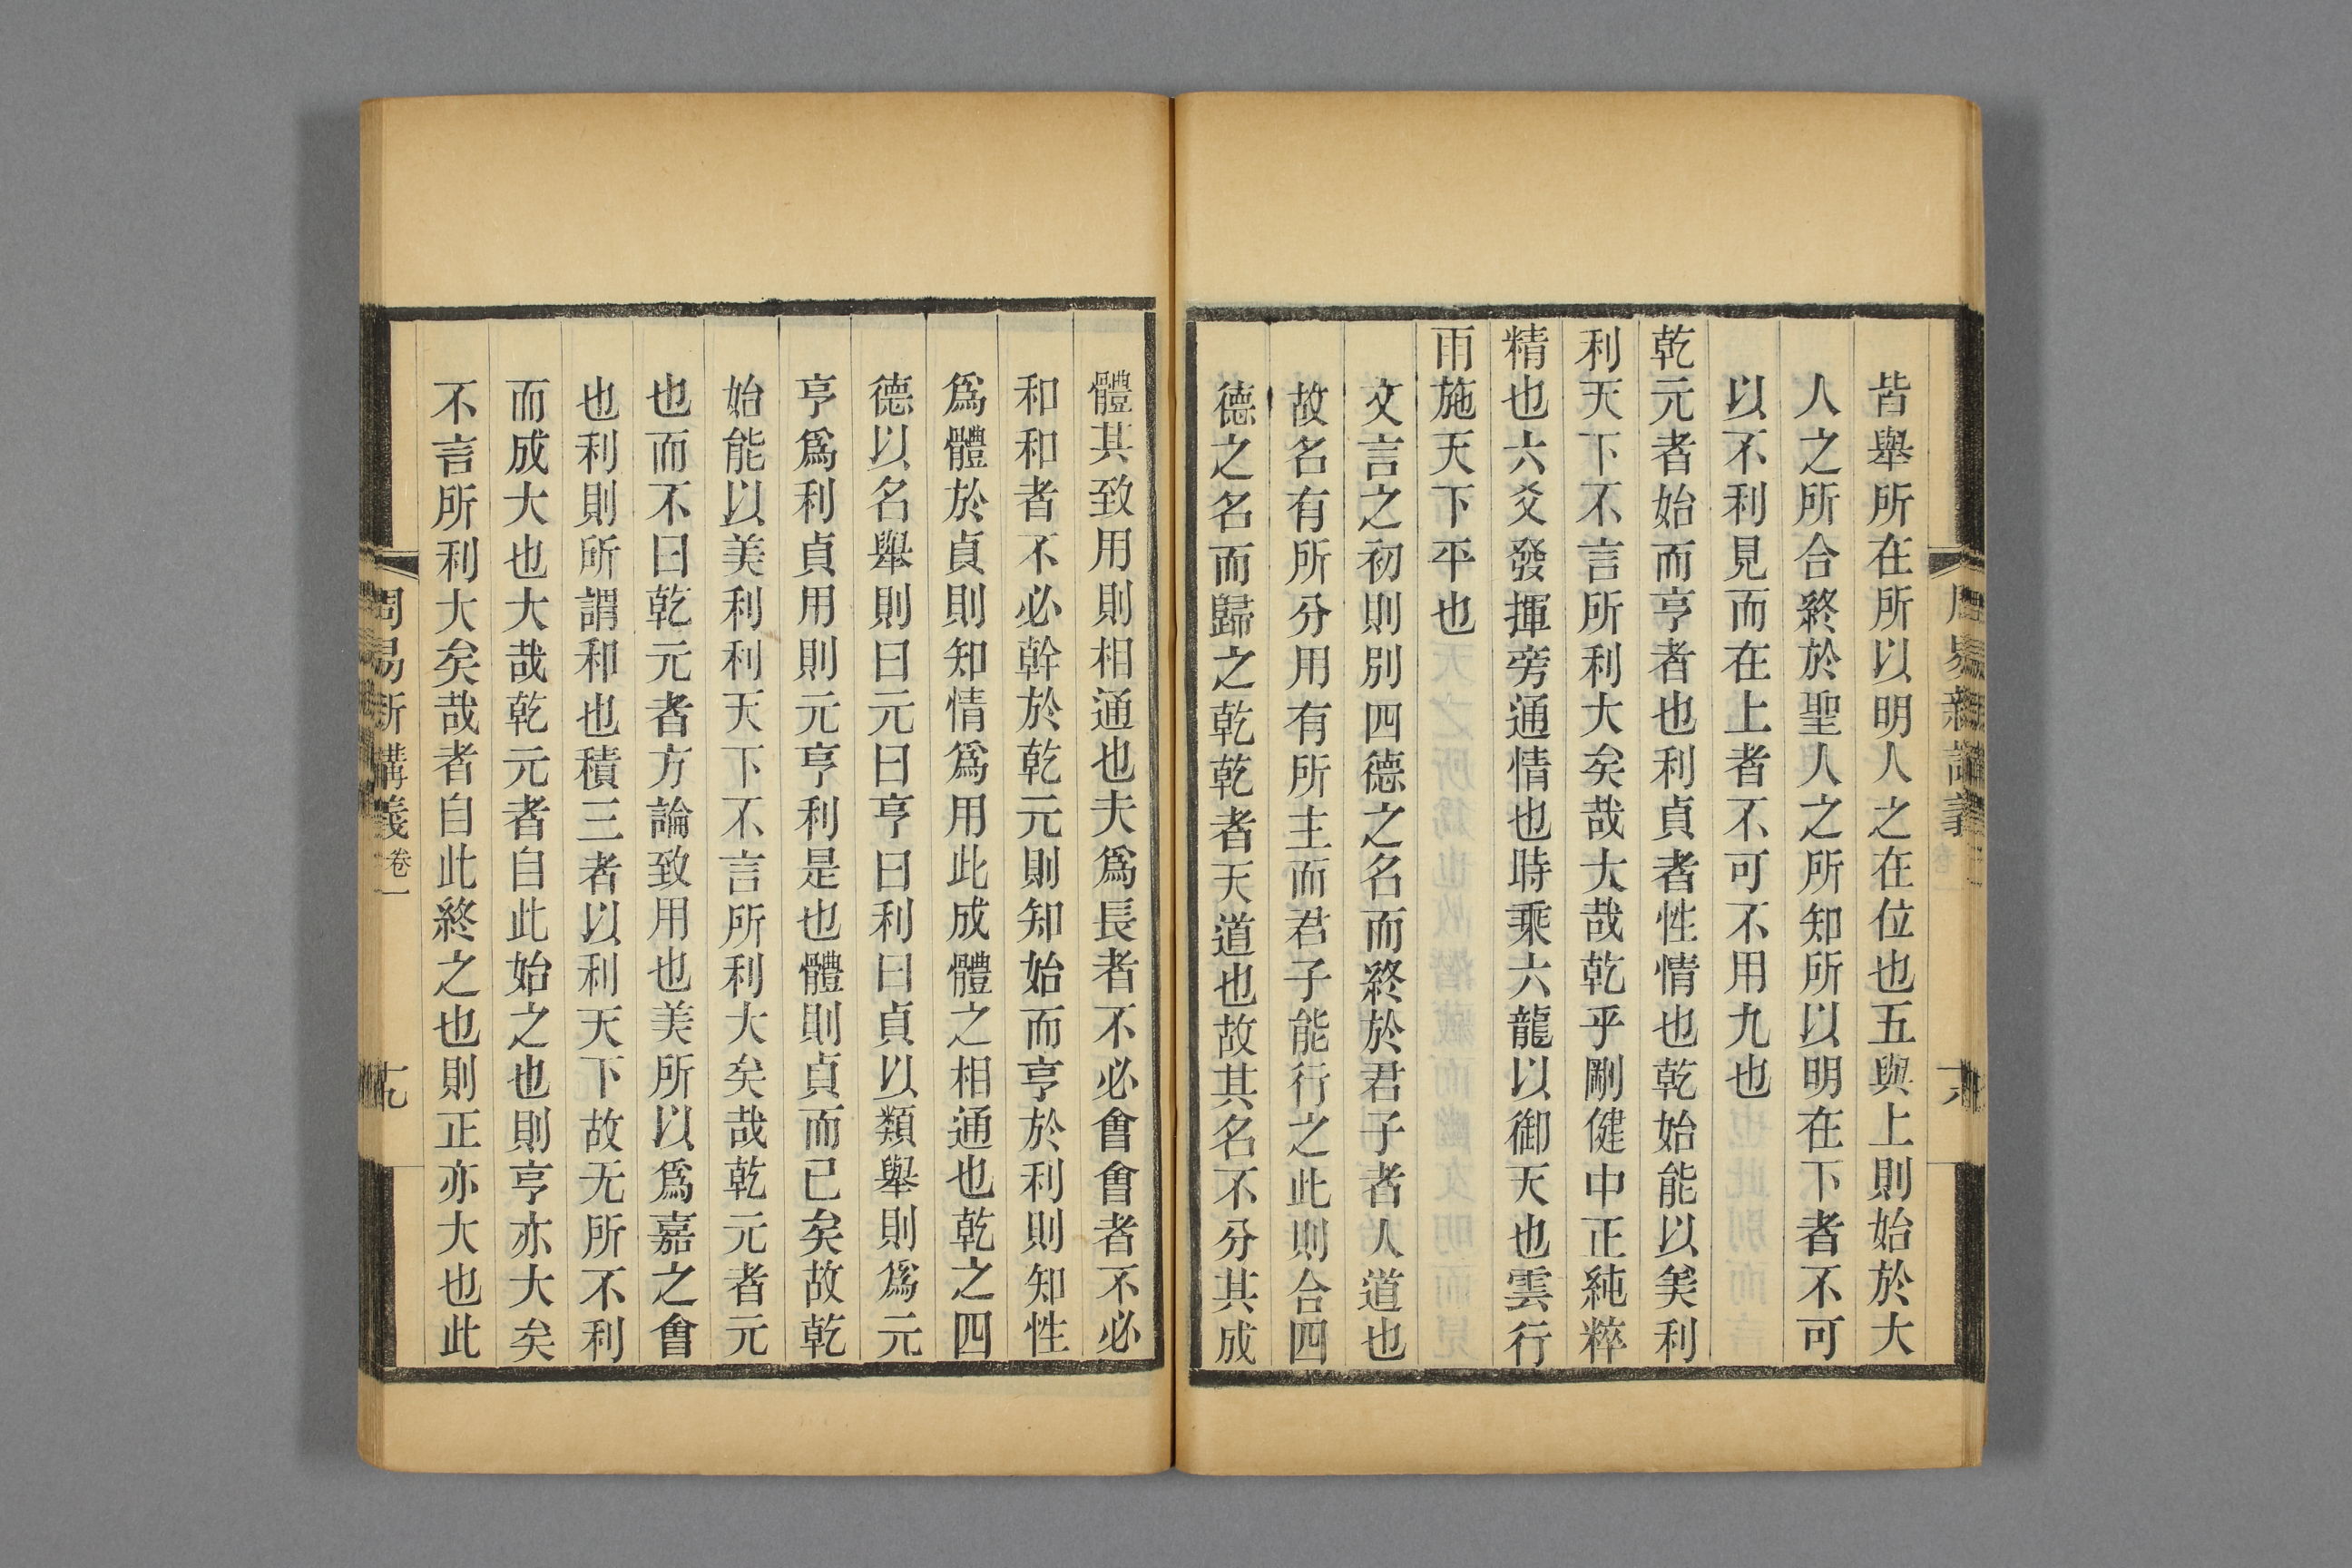 皆舉所在所以明人之在位也五與上則始於大
人之所合終於聖人之所知所以明在下者不可
以不利見而在上者不可不用九也
乾元者始而亨者也利貞者性情也乾始能以美利
利天下不言所利大矣哉大哉乾乎剛健中正純粹
精也六爻發揮旁通情也時乘六龍以御天也雲行
雨施天下平也
文言之初則別四德之名而終於君子者人道也
故名有所分用有所主而君子能行之此則合四
德之名而歸之乾乾者天道也故其名不分其成
體其致用則相通也夫爲長者不必會會者不必
和和者不必幹於乾元則知始而亨於利則知性
爲體於貞則知情爲用此成體之相通也乾之四
德以名舉則曰元曰亨曰利曰貞以類舉則爲元
亨爲利貞用則元亨利是也體則貞而已矣故乾
始能以美利利天下不言所利大矣哉乾元者元
也而不曰乾元者方論致用也美所以爲嘉之會
也利則所謂和也積三者以利天下故无所不利
而成大也大哉乾元者自此始之也則亨亦大矣
不言所利大矣哉者自此終之也則正亦大也此
周易新講義 卷一 十九